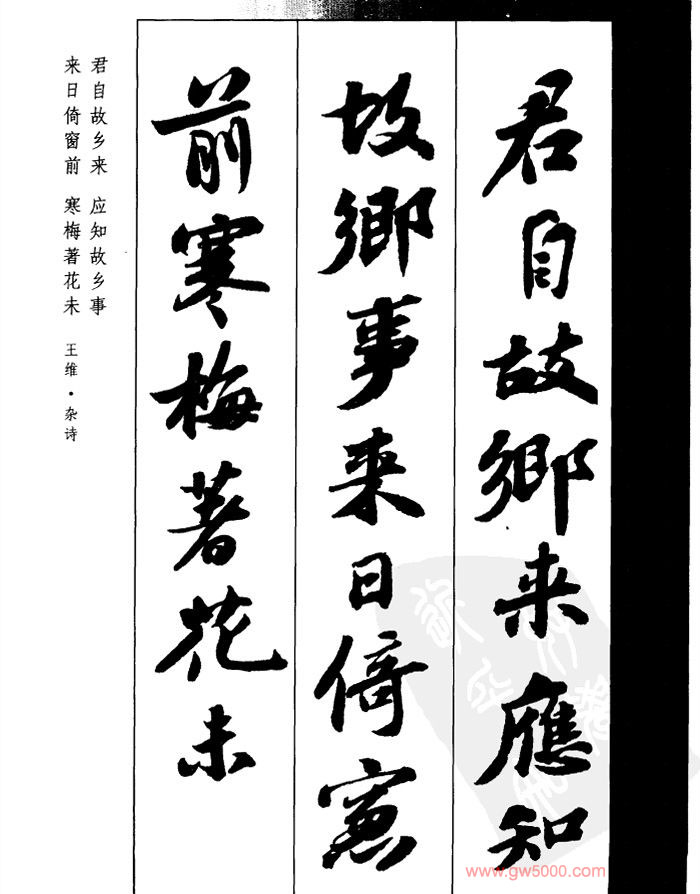 君自故鄉来應知
故鄉事来日倚窻
前寒梅著花未
君自故乡来 应知故乡事
来日倚窗前 寒梅著花未 王维·杂诗
www.gw5000.com